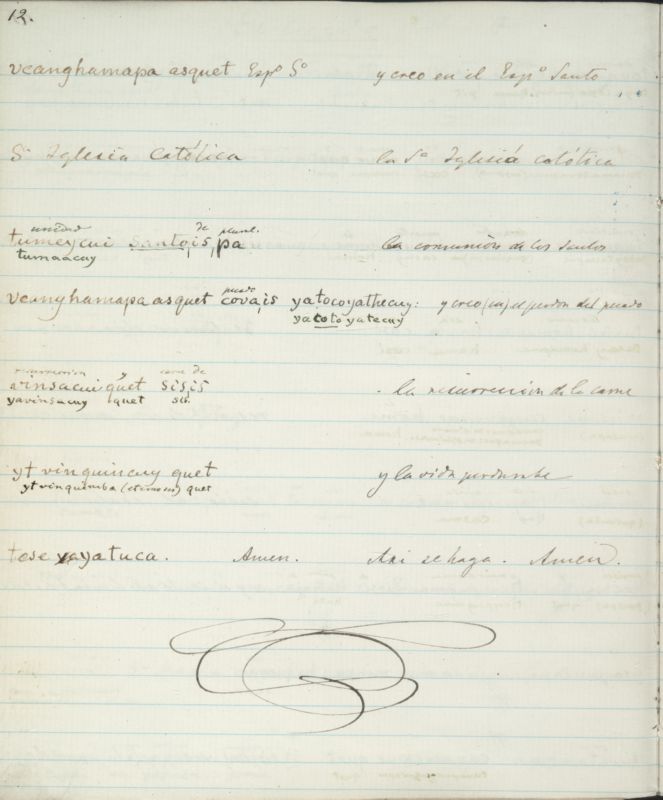 12.
vcanghamapa asquet Espº Sº y creo en el Espº Santo
Sª Iglesia Católica la Sª Iglesiá católica
unidad de plural.
tumeycui Santo,is,pa la comunión de los santos
tumaacuy
pecado
vcanghamapa asquet covais yatocoyathecuy: y creo (en) el perdon del pecado
yatotoyatecuy
resurreccion y carne de
avinsacui quet sisis la resurrección de la carne
yavinsacuy quet sis.
yt vinquincuy quet y la vida perdurable
yt vinquimba (etimos) quet
tose yayatuca. Amen. Asi se haga. Amen.